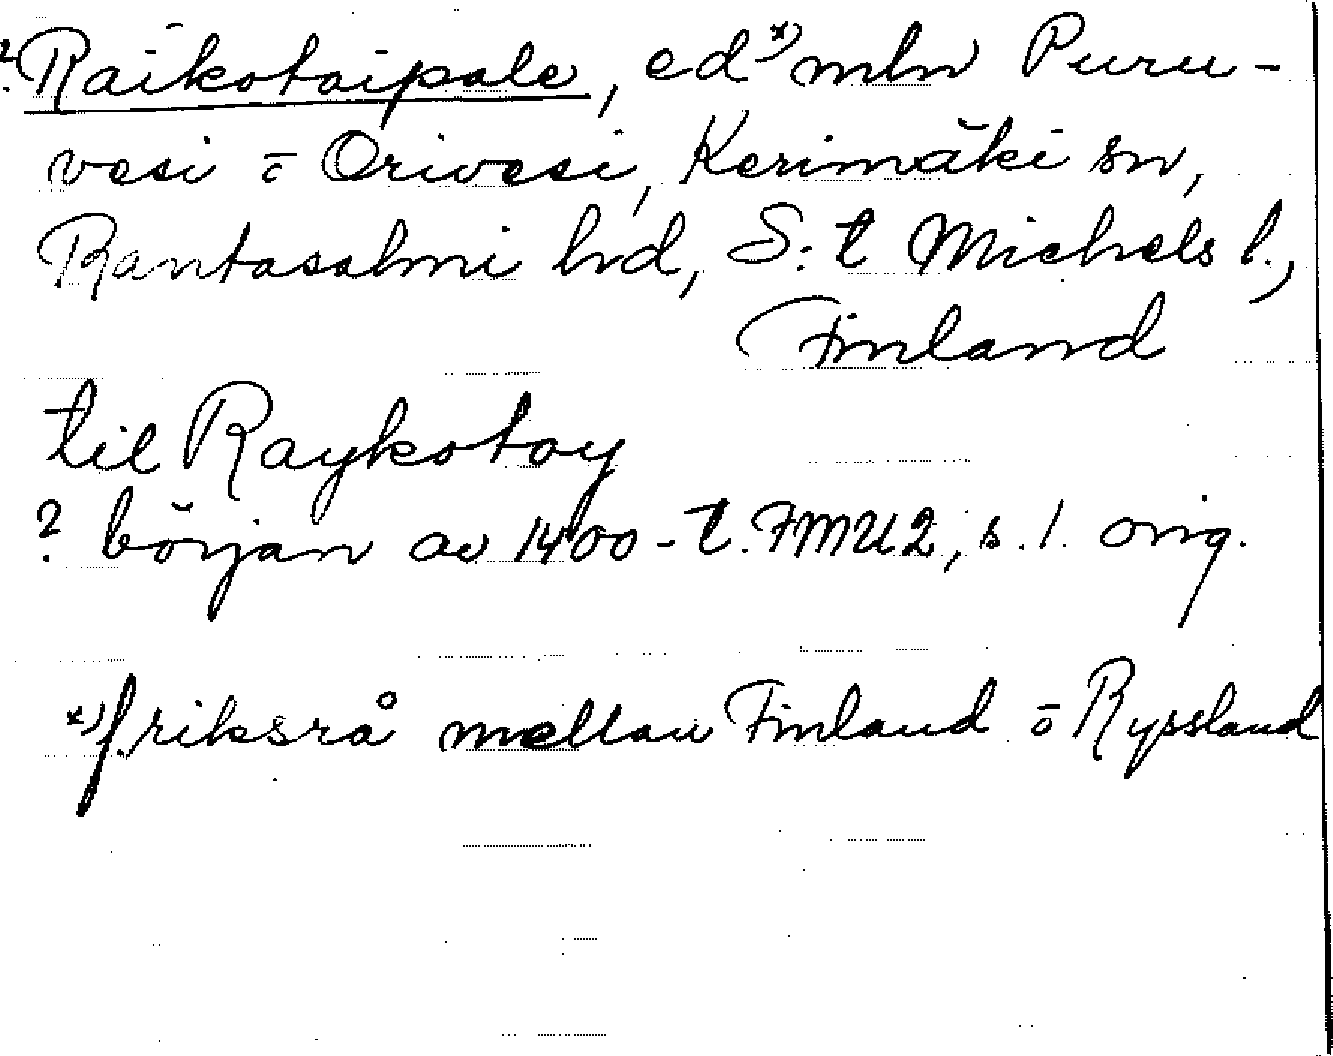 ? Raikotaipale, ed *) mln Puru-
vesi o Orivesi, Kerimäki sn,
Rantasalmi hd, S:t Michels l.,
Finland
til Raykotoy
? början av 1400-t. FMU2, s. 1. orig.
*) f. riksrå mellan Finland o Ryssland